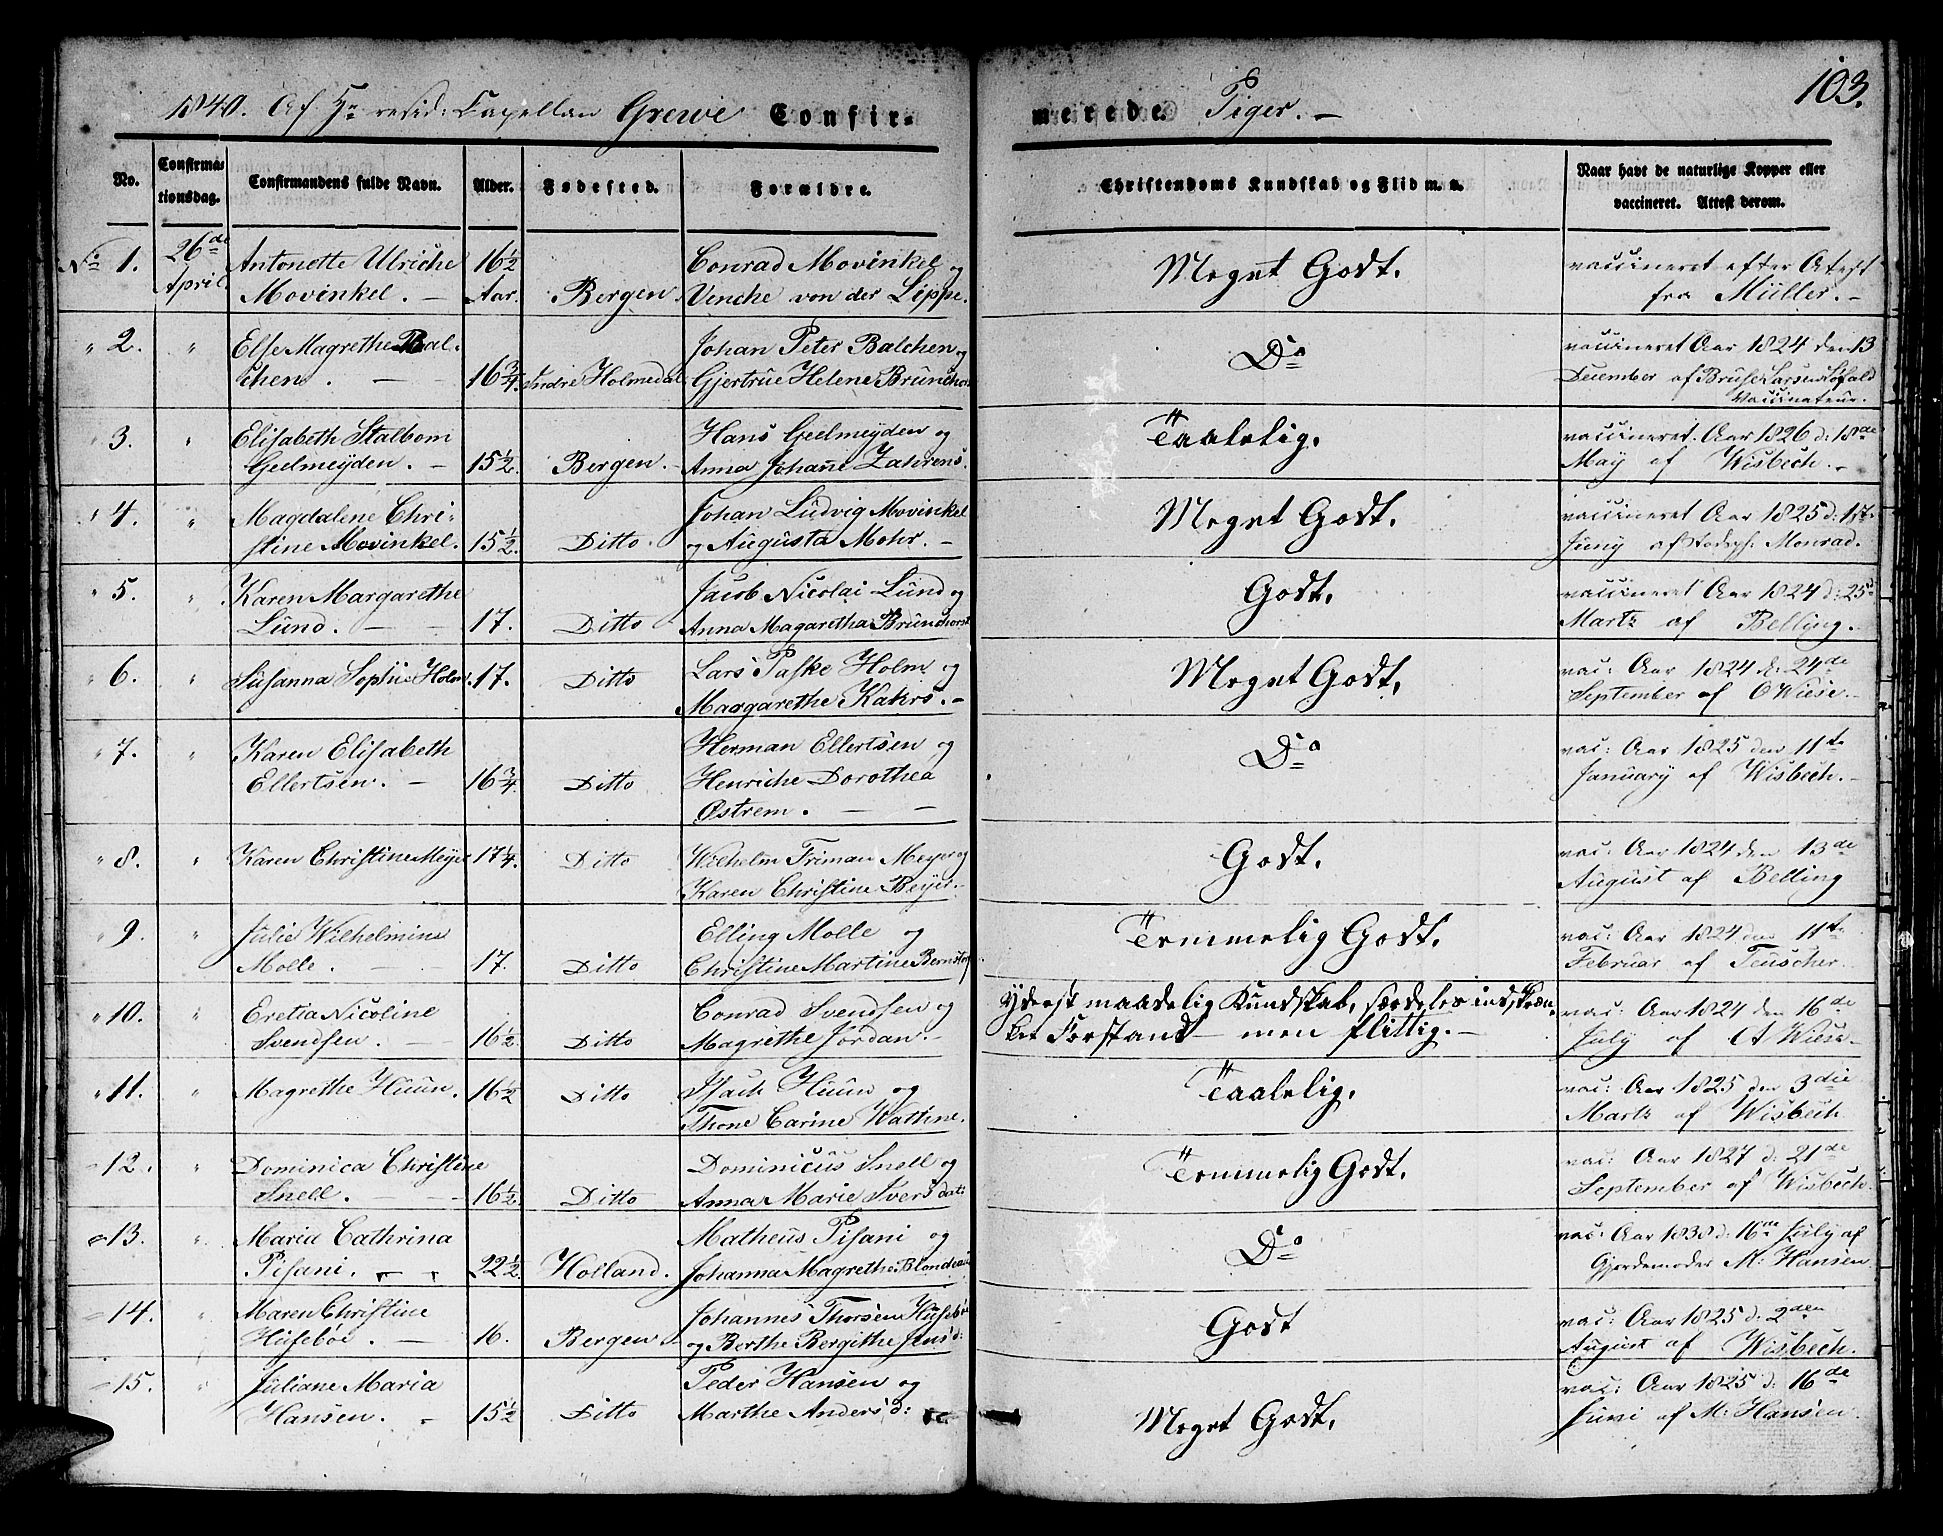 103.
1840. Af Hr resid: Capellan Grewe Confirmerede Piger. –
No. Confirmationsdag. Confirmandens fulde Navn. Alder. Fødested. Forældre. Christendoms Kundskab og Flid m. v. Naar havt de naturlige Kopper eller vaccineret. Attest derom.
No 1. 26de April. Antonette Ulriche 16½ Conrad Movinkel og Meget Godt. vaccineret efter Atest
Movinkel. – Aar. Bergen. Venche von der Lippe. fra Müller. –
" 2. " Else Magrethe Bal- Johan Peter Balchen og Do vaccineret Aar 1824 den 13
chen. – 16¾. Indre Holmedal Gjertrue Helene Brunchorst December af Bruse Larsen
Vaccinateur.
" 3. " Elisabeth Stalbom Hans Geelmeyden og Taalelig. vaccineret. Aar 1826 d: 18de
Geelmeyden. – 15½. Bergen. – Anna Johañe Zahrens. May af Wisbech. –
" 4. " Magdalene Chri- Johan Ludvig Movinkel Meget Godt. vaccineret Aar 1825 d: 17.
stine Movinkel. 15½. Ditto. og Augusta Mohr. – Juny af Monrad.
" 5. " Karen Margarethe Jacob Nicolai Lund og Godt. vaccineret Aar 1824 d: 25de
Lund. – 17. Ditto Anna Magaretha Brunchorst Martz af Belling. –
" 6. " Susanna Sophie Holm. 17. Ditto Lars Paske Holm og Meget Godt. vac: Aar 1824 d: 24de
Margarethe Kahrs. – September af C Wiese. –
" 7. " Karen Elisabeth Herman Ellertsen og Do vac: Aar 1825 den 11te
Ellertsen. – 16¾. Ditto Henriche Dorothea January af Wisbech. –
Østrem. – –
" 8. " Karen Christine Meyer 17¼. Ditto Wilhelm Friman Meyer og Godt. vac: Aar 1824 den 13de
Karen Christine Beyer. – August af Belling
" 9. " Julie Wilhelmine Elling Molle og Temmelig Godt. vac: Aar 1824 den 11te
Molle. – 17. Ditto Christine Martine Bernstof Februar af Teuscher.
" 10. " Eretia Nicoline Conrad Svendsen og Yderst maadelig Kundskab, særdeles indskræn- vac: Aar 1824 den 16de
Svendsen. – 16½. Ditto Magrethe Jordan. – ket Forstand – men flittig. – July af A Wiese –
" 11. " Magrethe Huun. 16½ Ditto Isach Huun og Taalelig. vac: Aar 1825 den 3die
Thone Carine Wathne. Martz af Wisbech
" 12. " Dominica Christine Dominicus Snell og Temmelig Godt. vac: Aar 1827 d: 21de
Snell. – 16½. Ditto Anna Marie Iversdat: September af Wisbech.
" 13. " Maria Cathrina Matheus Pisani og Do vac: Aar 1838 d: 16de July af
Pisani. – 22½. Holland. Johanna Magrethe Blondeau Gjordemoder M: Hansen
" 14. " Maren Christine Johannes Thorsen Husebøe Godt vac: Aar 1825 d: 2den
Husebøe. – 16. Bergen – og Berthe Bergithe Jensd: August af Wisbech.
" 15. " Juliane Maria Peder Hansen og Meget Godt. vac: Aar 1825 d: 16de
Hansen. – 15½ Ditto Marthe Andersd: Juni af M: Hansen.